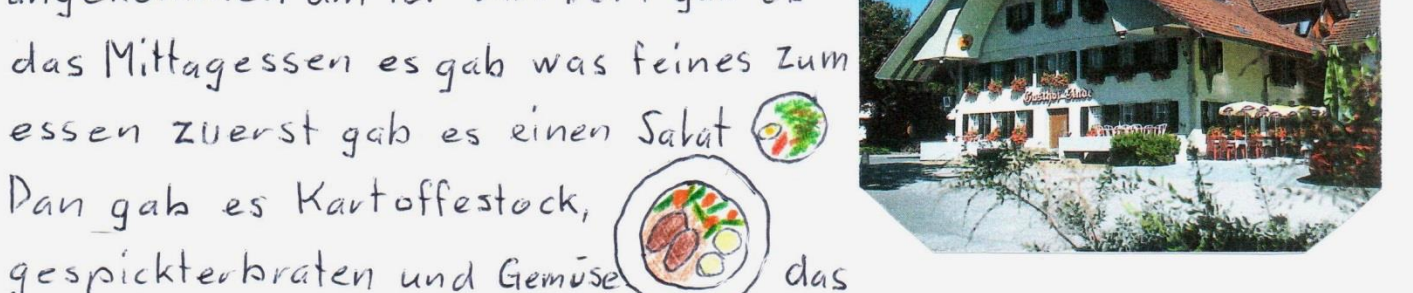 das Mittagessen es gab was feines zum
essen zuerst gab es einen Salat
Dan gab es Kartoffestock,
gespickterbraten und Gemüse das
Gasthof Linde